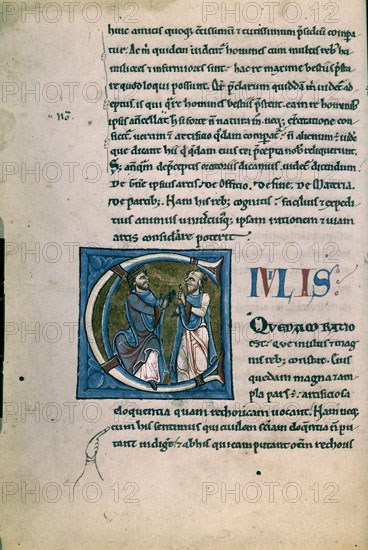 huic amicis quoq; certissimũ ⁊ certissimum p̃sidiũ compa
tur. Ac m̃ quidem uident̃ homines cum multis reb;
humiliores ⁊ infirmiores sint. hac re maxime bestiis p̃sta
re quod loqui possunt. Q̃re p̃clarum quidda m̃ uidet̃ ad
eptus. is qui q̃ re homines bestiis p̃stent. ea in re hominib;
ipsis antecellat. H si forte ñ natura m̃ neq; exercitatione con
ficit̃. uerum ⁊ artificio q̃dam comparat̃. ñ alienum ẽ uide
re que dicant hii q̃ quedam eius rei p̃cepta nob̃ reliquerunt.
S; anq̃m de p̃ceptis oratoriis dicamus. uidet̃ dicendum
De gñe ipsius artis. De officio. De fine. De Materia.
De partib;. Nam his reb; cognitis. facilius ⁊ expedi
tius animus uniuscuiusq; ipsam rationem ⁊ uiam
artis considerare poterit.
CIVILIS
QVEDAM RATIO
est. que multis ⁊ mag
nis reb; constat. Eius
quedam magna ⁊ am
pla pars ẽ. artificiosa
eloquentia quam rethoricam uocant. Nam neq;
cum his sentimus qui ciuilem sciam eloq̃ntia ñ pu
tant indigẽ. ⁊ ab his qui eam putant om̃em rethoris